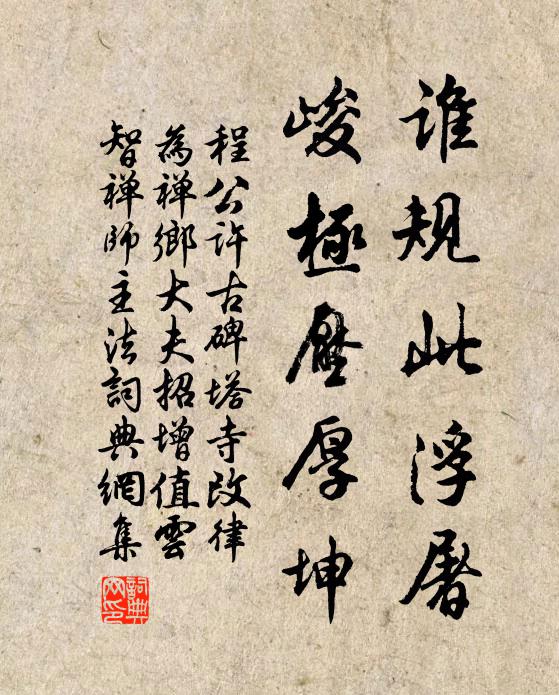 誰規此浮屠
峻極壓厚坤
程公許古碑塔寺改律
為禅鄉大夫招增值雲
智禅師主法詞典網集
詞典網印